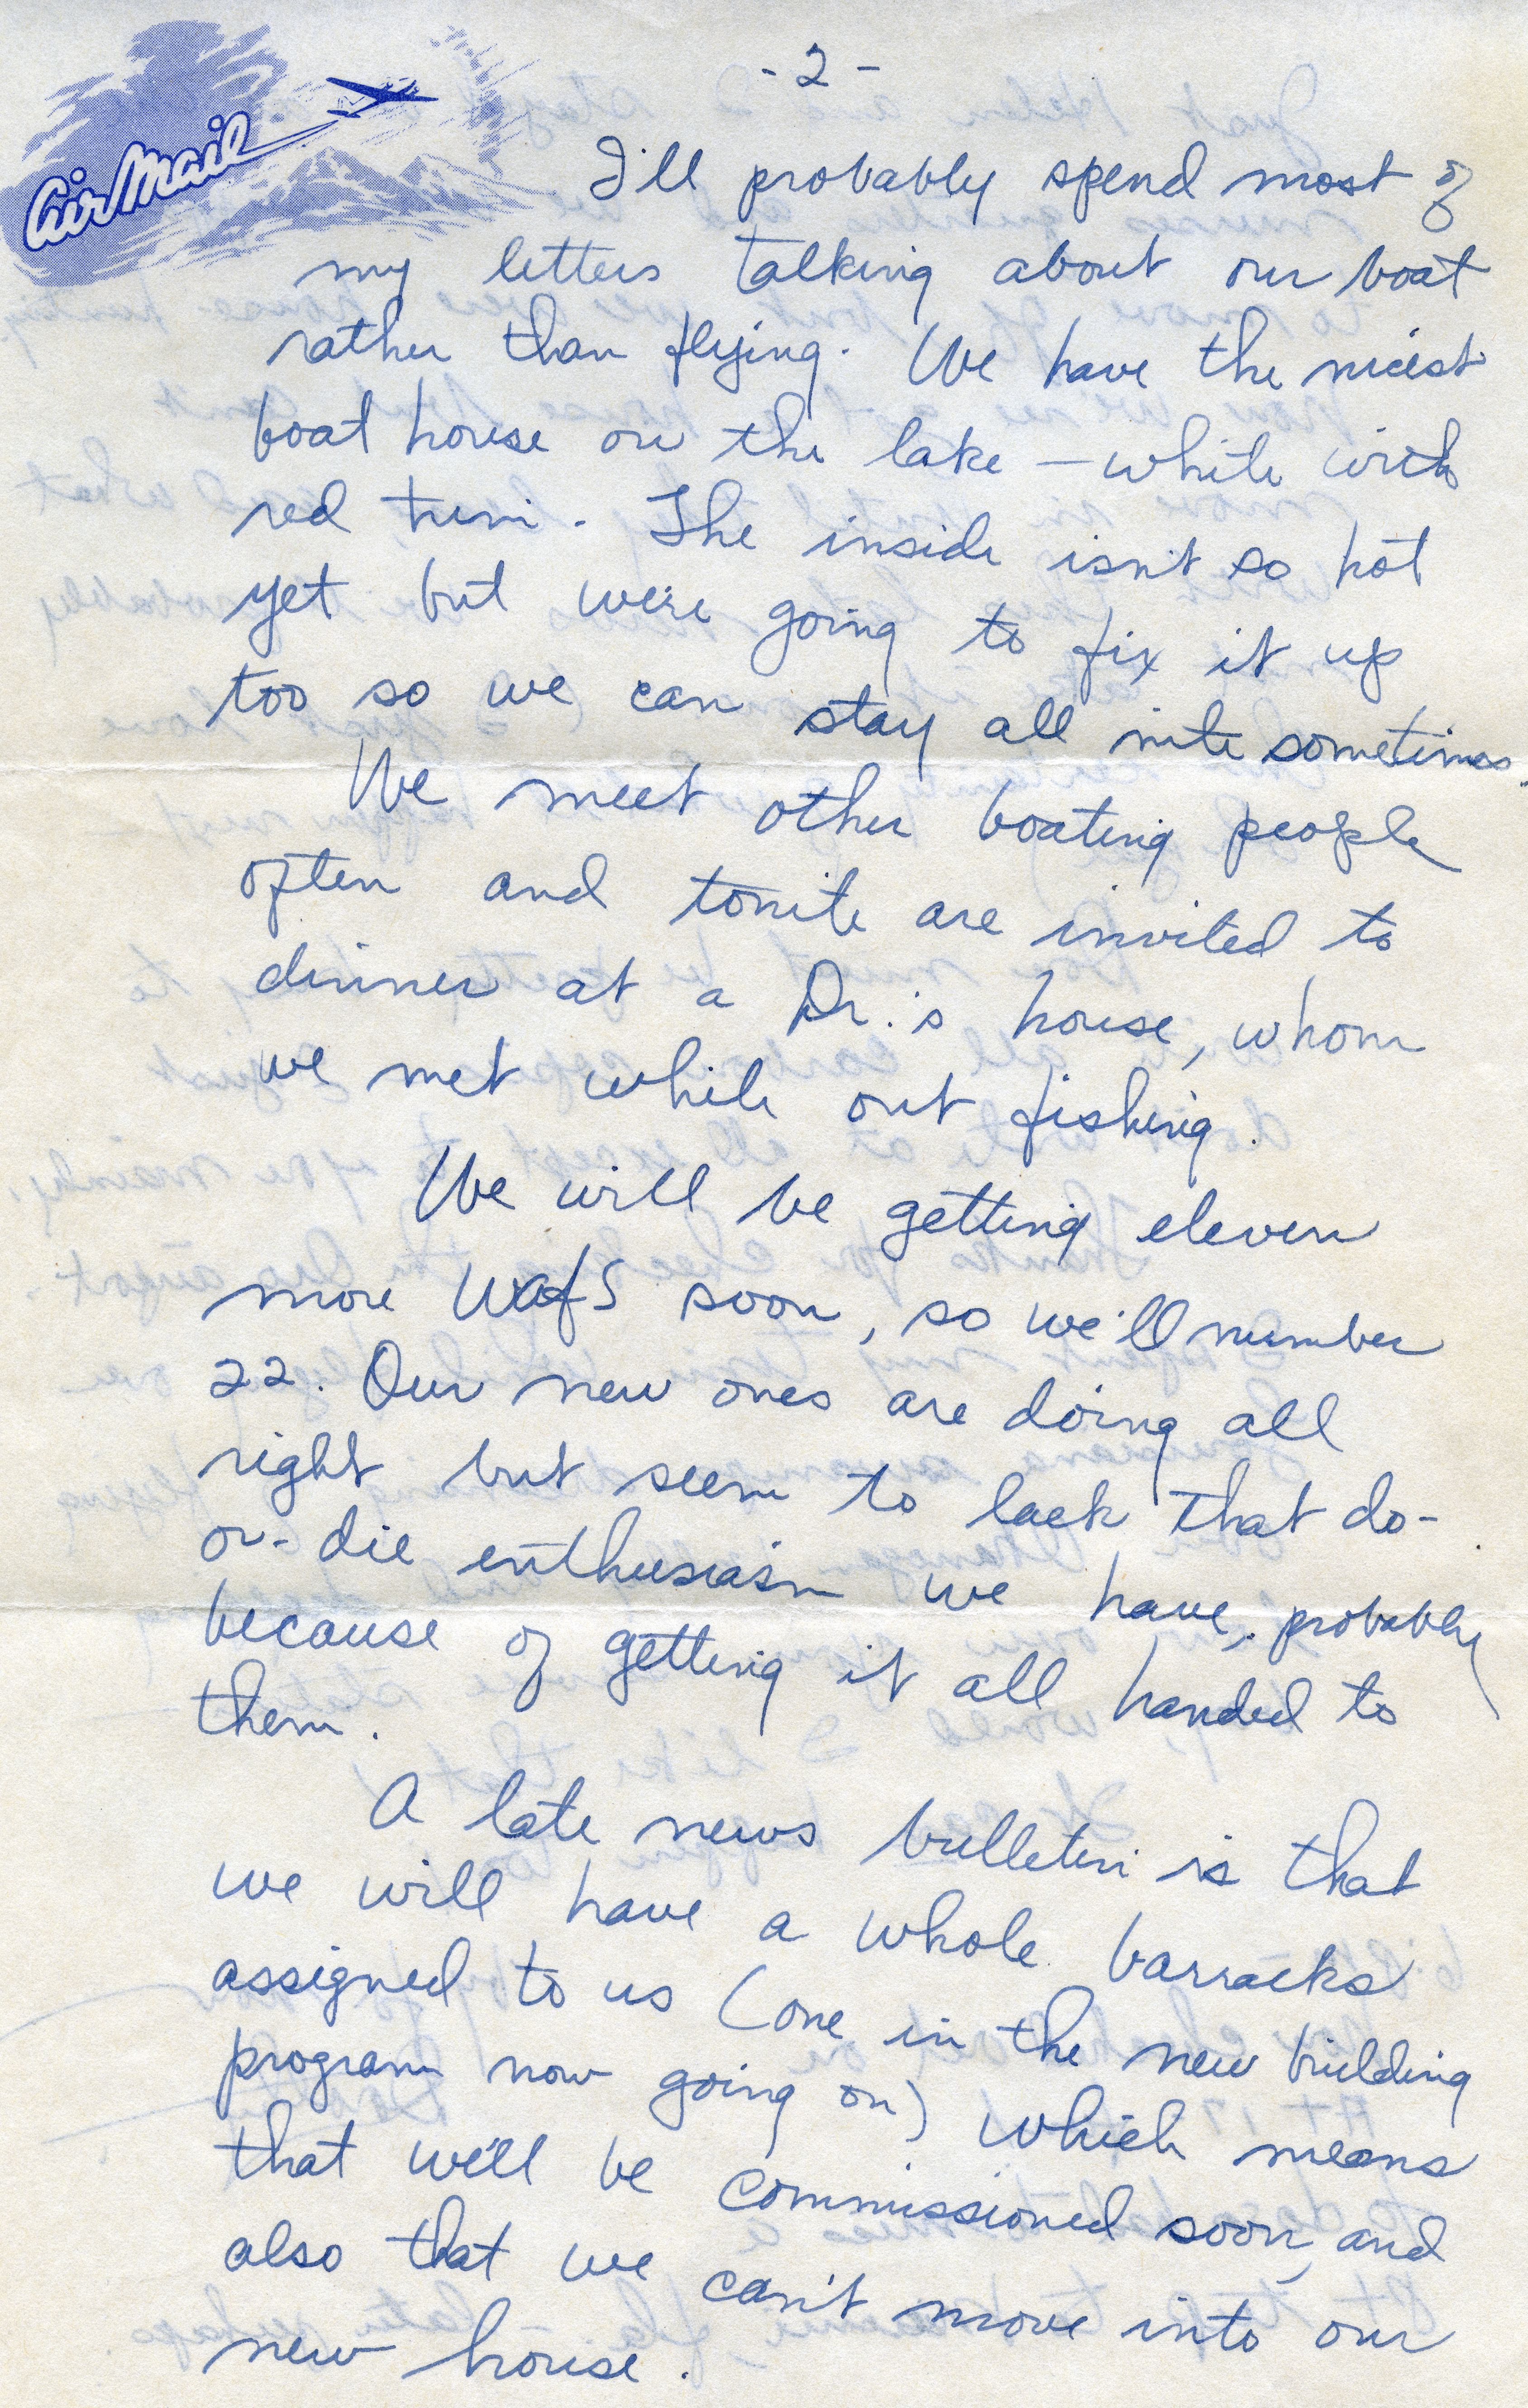 Air Mail
- 2 -
I'll probably spend most of
my letters talking about our boat
rather than flying. We have the nicest
boat house on the lake — white with
red trim. The inside isn't so hot
yet but we're going to fix it up
too so we can stay all nite sometimes.
We meet other boating people
often and tonite are invited to
dinner at a Dr.'s house, whom
we met while out fishing.
We will be getting eleven
more WafS soon, so we'll number
22. Our new ones are doing all
right but seem to lack that do-
or-die enthusiasm we have, probably
because of getting it all handed to
them.
A late news bulletin is that
we will have a whole barracks
assigned to us (one in the new building
program now going on) which means
that we'll be commissioned soon, and
also that we can't move into our
new house.